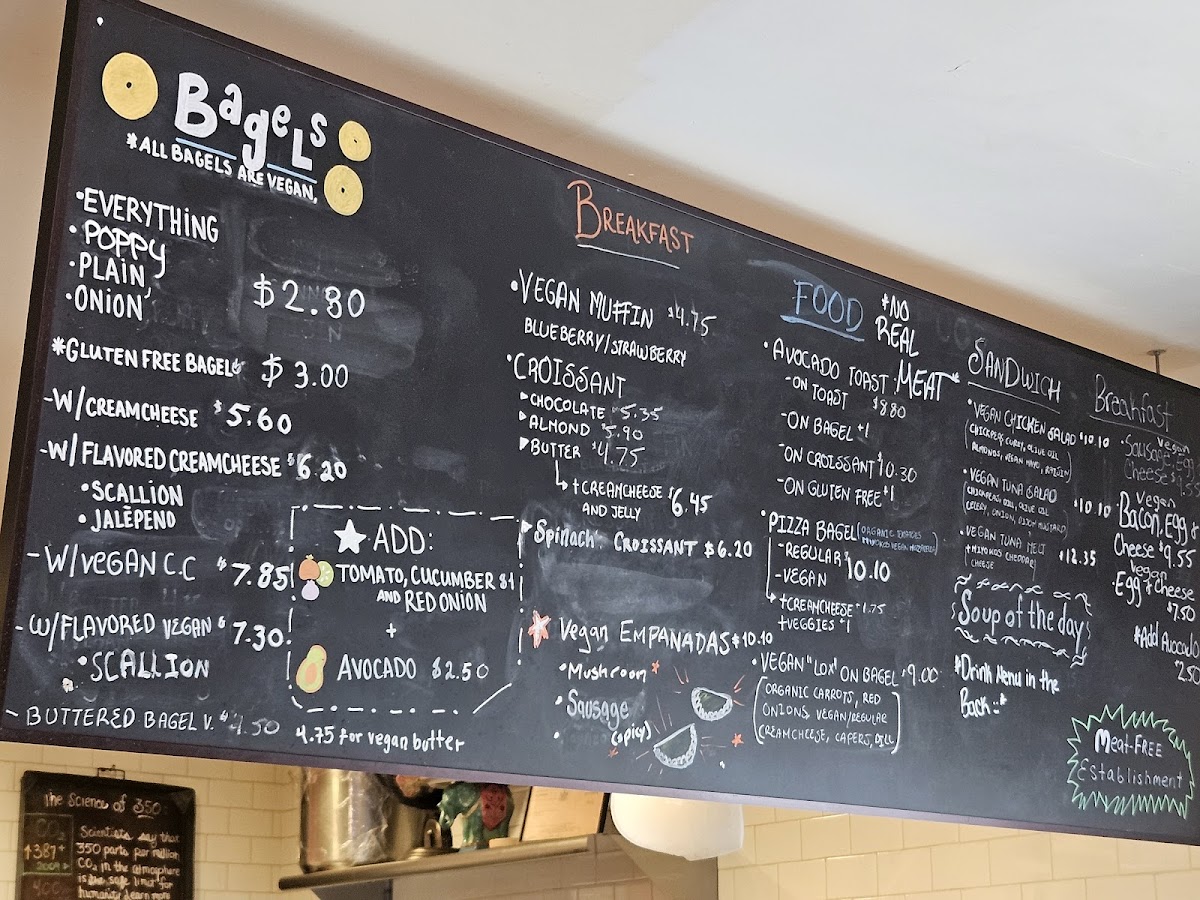 Bagels
*ALL BAGELS ARE VEGAN,
•EVERYTHING
•POPPY
•PLAIN,
•ONION
$2.80
*GLUTEN FREE BAGEL $3.00
-W/CREAMCHEESE $5.60
-W/FLAVORED CREAMCHEESE $6.20
•SCALLION
•JALĒPENO
-W/VEGAN C.C $7.85
-W/FLAVORED VEGAN $7.30
•SCALLION
-BUTTERED BAGEL V. $4.50
4.75 for vegan butter
ADD:
TOMATO, CUCUMBER $1
AND RED ONION
+
AVOCADO $2.50
BREAKFAST
•VEGAN MUFFIN $4.75
BLUEBERRY/STRAWBERRY
•CROISSANT
CHOCOLATE 5.35
ALMOND 5.90
BUTTER $4.75
+CREAMCHEESE $6.45
AND JELLY
Spinach CROISSANT $6.20
Vegan EMPANADAS $10.10
•Mushroom
•Sausage
(spicy)
FOOD
*NO
REAL
MEAT*
•AVOCADO TOAST
-ON TOAST $8.80
-ON BAGEL +1
-ON CROISSANT $10.30
-ON GLUTEN FREE $1
•PIZZA BAGEL (ORGANIC TOMATOES
MIYOKOS VEGAN MOZZARELLA)
-REGULAR
-VEGAN
$10.10
+CREAMCHEESE $1.75
+VEGGIES $1
•VEGAN "LOX" ON BAGEL $9.00
ORGANIC CARROTS, RED
ONIONS, VEGAN/REGULAR
CREAMCHEESE, CAPERS, DILL
SANDWICH
•VEGAN CHICKEN SALAD $10.10
(CHICKPEAS, CURRY, OLIVE OIL
ALMONDS, VEGAN MAYO, RAISIN)
•VEGAN TUNA SALAD $10.10
(CHICKPEAS, DILL, OLIVE OIL
CELERY, ONION, DIJON MUSTARD)
•VEGAN TUNA MELT $12.35
+MIYOKOS CHEDDAR
CHEESE
Soup of the day
*Drink Menu in the
Back :*
Breakfast
•Vegan
Sausage, Egg
Cheese
Vegan
Bacon, Egg &
Cheese $9.55
Vegan
•Egg & Cheese
$7.50
*Add Avocado
2.50
Meat-FREE
Establishment
The Science of 350
CO₂
↑387+
2009
400
Scientists say that
350 parts per million
CO₂ in the atmosphere
is the safe limit for
humanity. Learn more